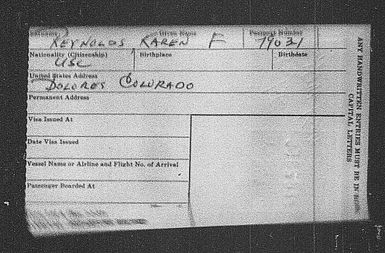 Given Name Passport Number
REYNOLDS KAREN F 79031
Nationality (Citizenship) Birthplace Birthdate
USC
United States Address
DOLORES COLORADO
Permanent Address
Visa Issued At
Date Visa Issued
Vessel Name or Airline and Flight No. of Arrival
Passenger Boarded At
ANY HANDWRITTEN ENTRIES MUST BE IN
CAPITAL LETTERS